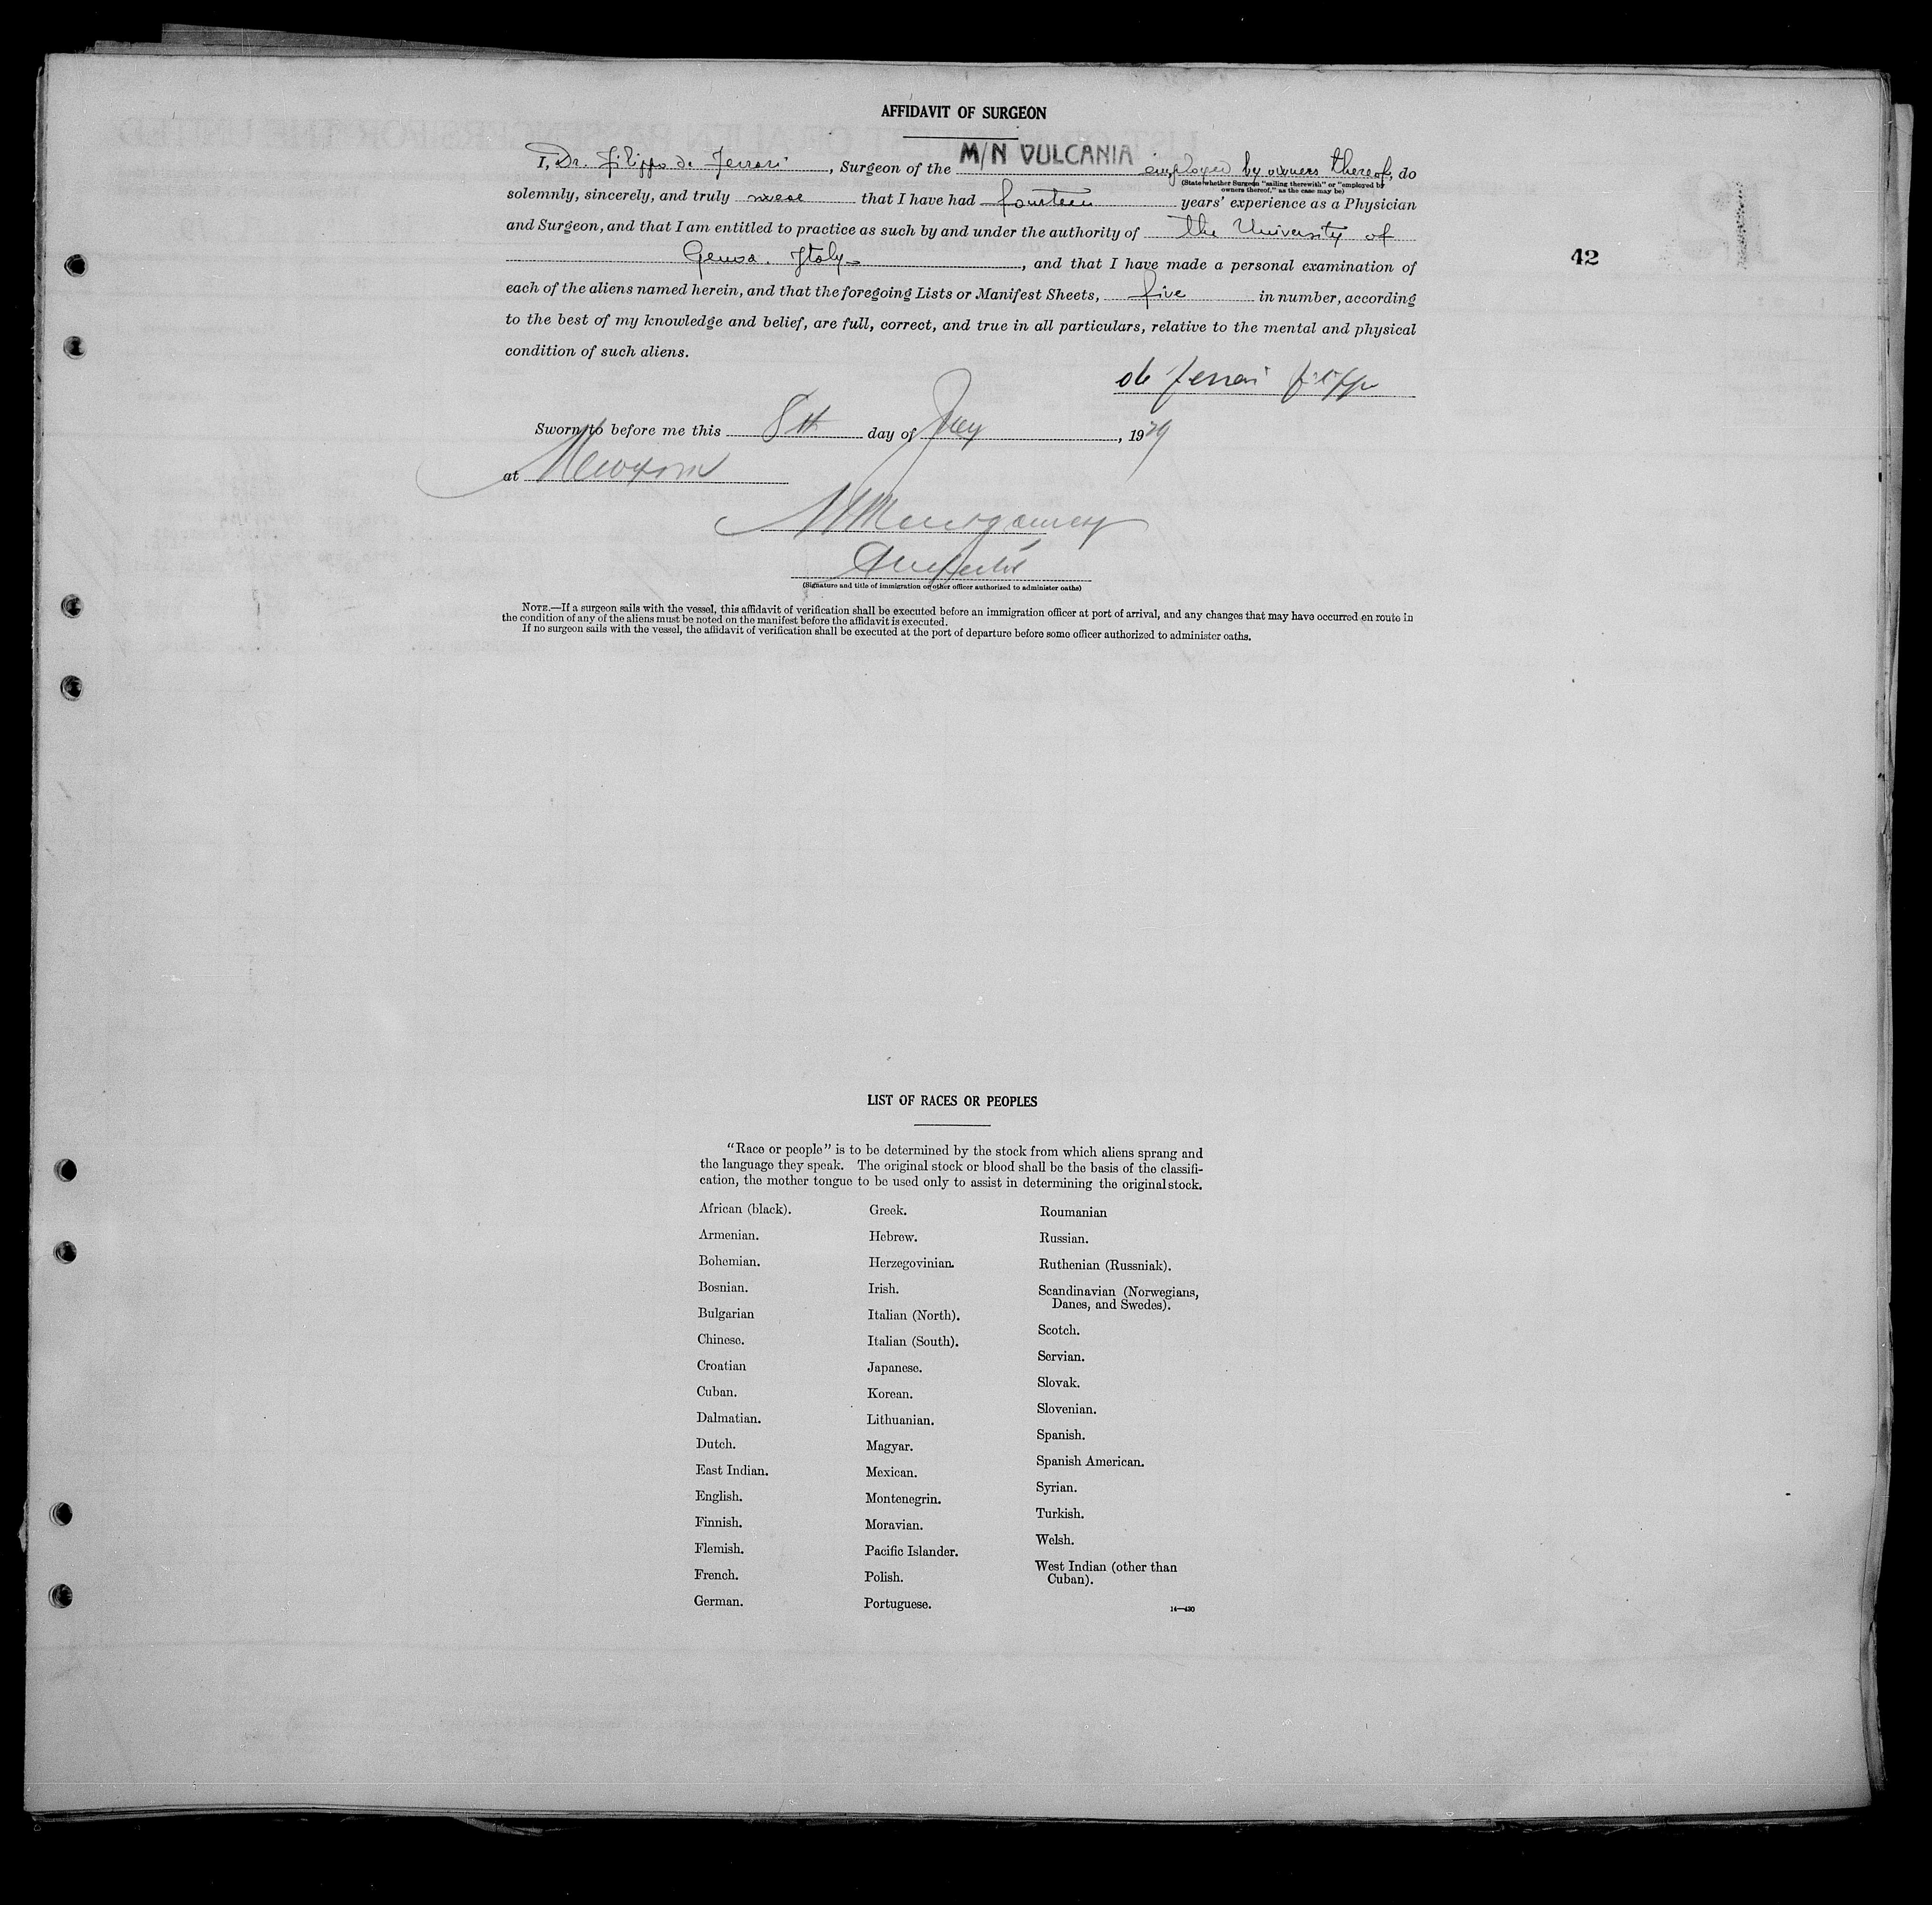 AFFIDAVIT OF SURGEON
I, Dr. Filippo de Ferrari, Surgeon of the M/N VULCANIA employed by owners thereof, do
(State whether Surgeon "sailing therewith" or "employed by
owners thereof," as the case may be)
solemnly, sincerely, and truly swear that I have had fourteen years' experience as a Physician
and Surgeon, and that I am entitled to practice as such by and under the authority of the University of
Genoa. Italy-, and that I have made a personal examination of
42
each of the aliens named herein, and that the foregoing Lists or Manifest Sheets, five in number, according
to the best of my knowledge and belief, are full, correct, and true in all particulars, relative to the mental and physical
condition of such aliens.
de Ferrari Filippo
Sworn to before me this 8th day of, 19
at New York
Montgomery
(Signature and title of immigration or other officer authorized to administer oaths)
NOTE.—If a surgeon sails with the vessel, this affidavit of verification shall be executed before an immigration officer at port of arrival, and any changes that may have occurred en route in
the condition of any of the aliens must be noted on the manifest before the affidavit is executed.
If no surgeon sails with the vessel, the affidavit of verification shall be executed at the port of departure before some officer authorized to administer oaths.
LIST OF RACES OR PEOPLES
"Race or people" is to be determined by the stock from which aliens sprang and
the language they speak. The original stock or blood shall be the basis of the classifi-
cation, the mother tongue to be used only to assist in determining the original stock.
African (black).
Armenian.
Bohemian.
Bosnian.
Bulgarian
Chinese.
Croatian
Cuban.
Dalmatian.
Dutch.
East Indian.
English.
Finnish.
Flemish.
French.
German.
Greek.
Hebrew.
Herzegovinian.
Irish.
Italian (North).
Italian (South).
Japanese.
Korean.
Lithuanian.
Magyar.
Mexican.
Montenegrin.
Moravian.
Pacific Islander.
Polish.
Portuguese.
Roumanian
Russian.
Ruthenian (Russniak).
Scandinavian (Norwegians,
Danes, and Swedes).
Scotch.
Servian.
Slovak.
Slovenian.
Spanish.
Spanish American.
Syrian.
Turkish.
Welsh.
West Indian (other than
Cuban).
14—430